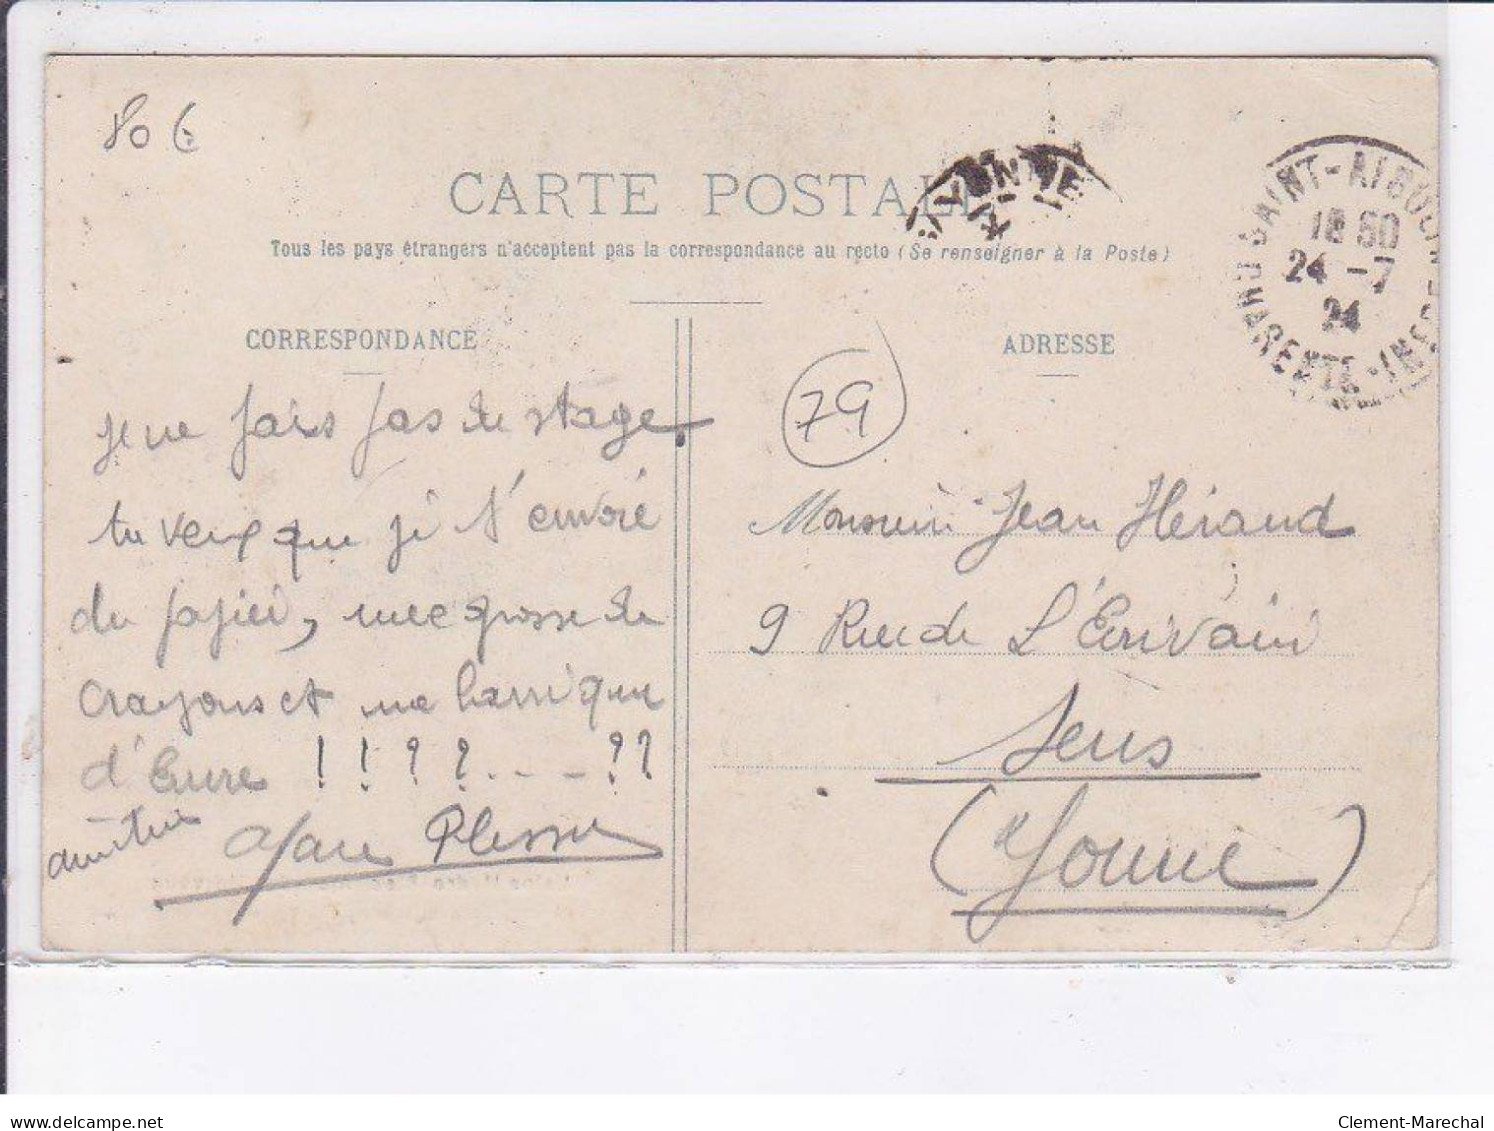 80 €
CARTE POSTALE
Tous les pays étrangers n'acceptent pas la correspondance au recto (Se renseigner à la Poste)
SAINT-AIGULIN
18 50
24 -7
24
CHARENTE-INF
CORRESPONDANCE
Je ne fais pas de stage.
tu veux que je t'envoie
du papier, une grosse de
crayons et une barrique
d'Encre !!??...-??
amitiés
79
ADRESSE
Monsieur Jean Héraud
9 Rue de L'Écrivain
Sens
(Yonne)
delcampe.net
Clement-Marechal